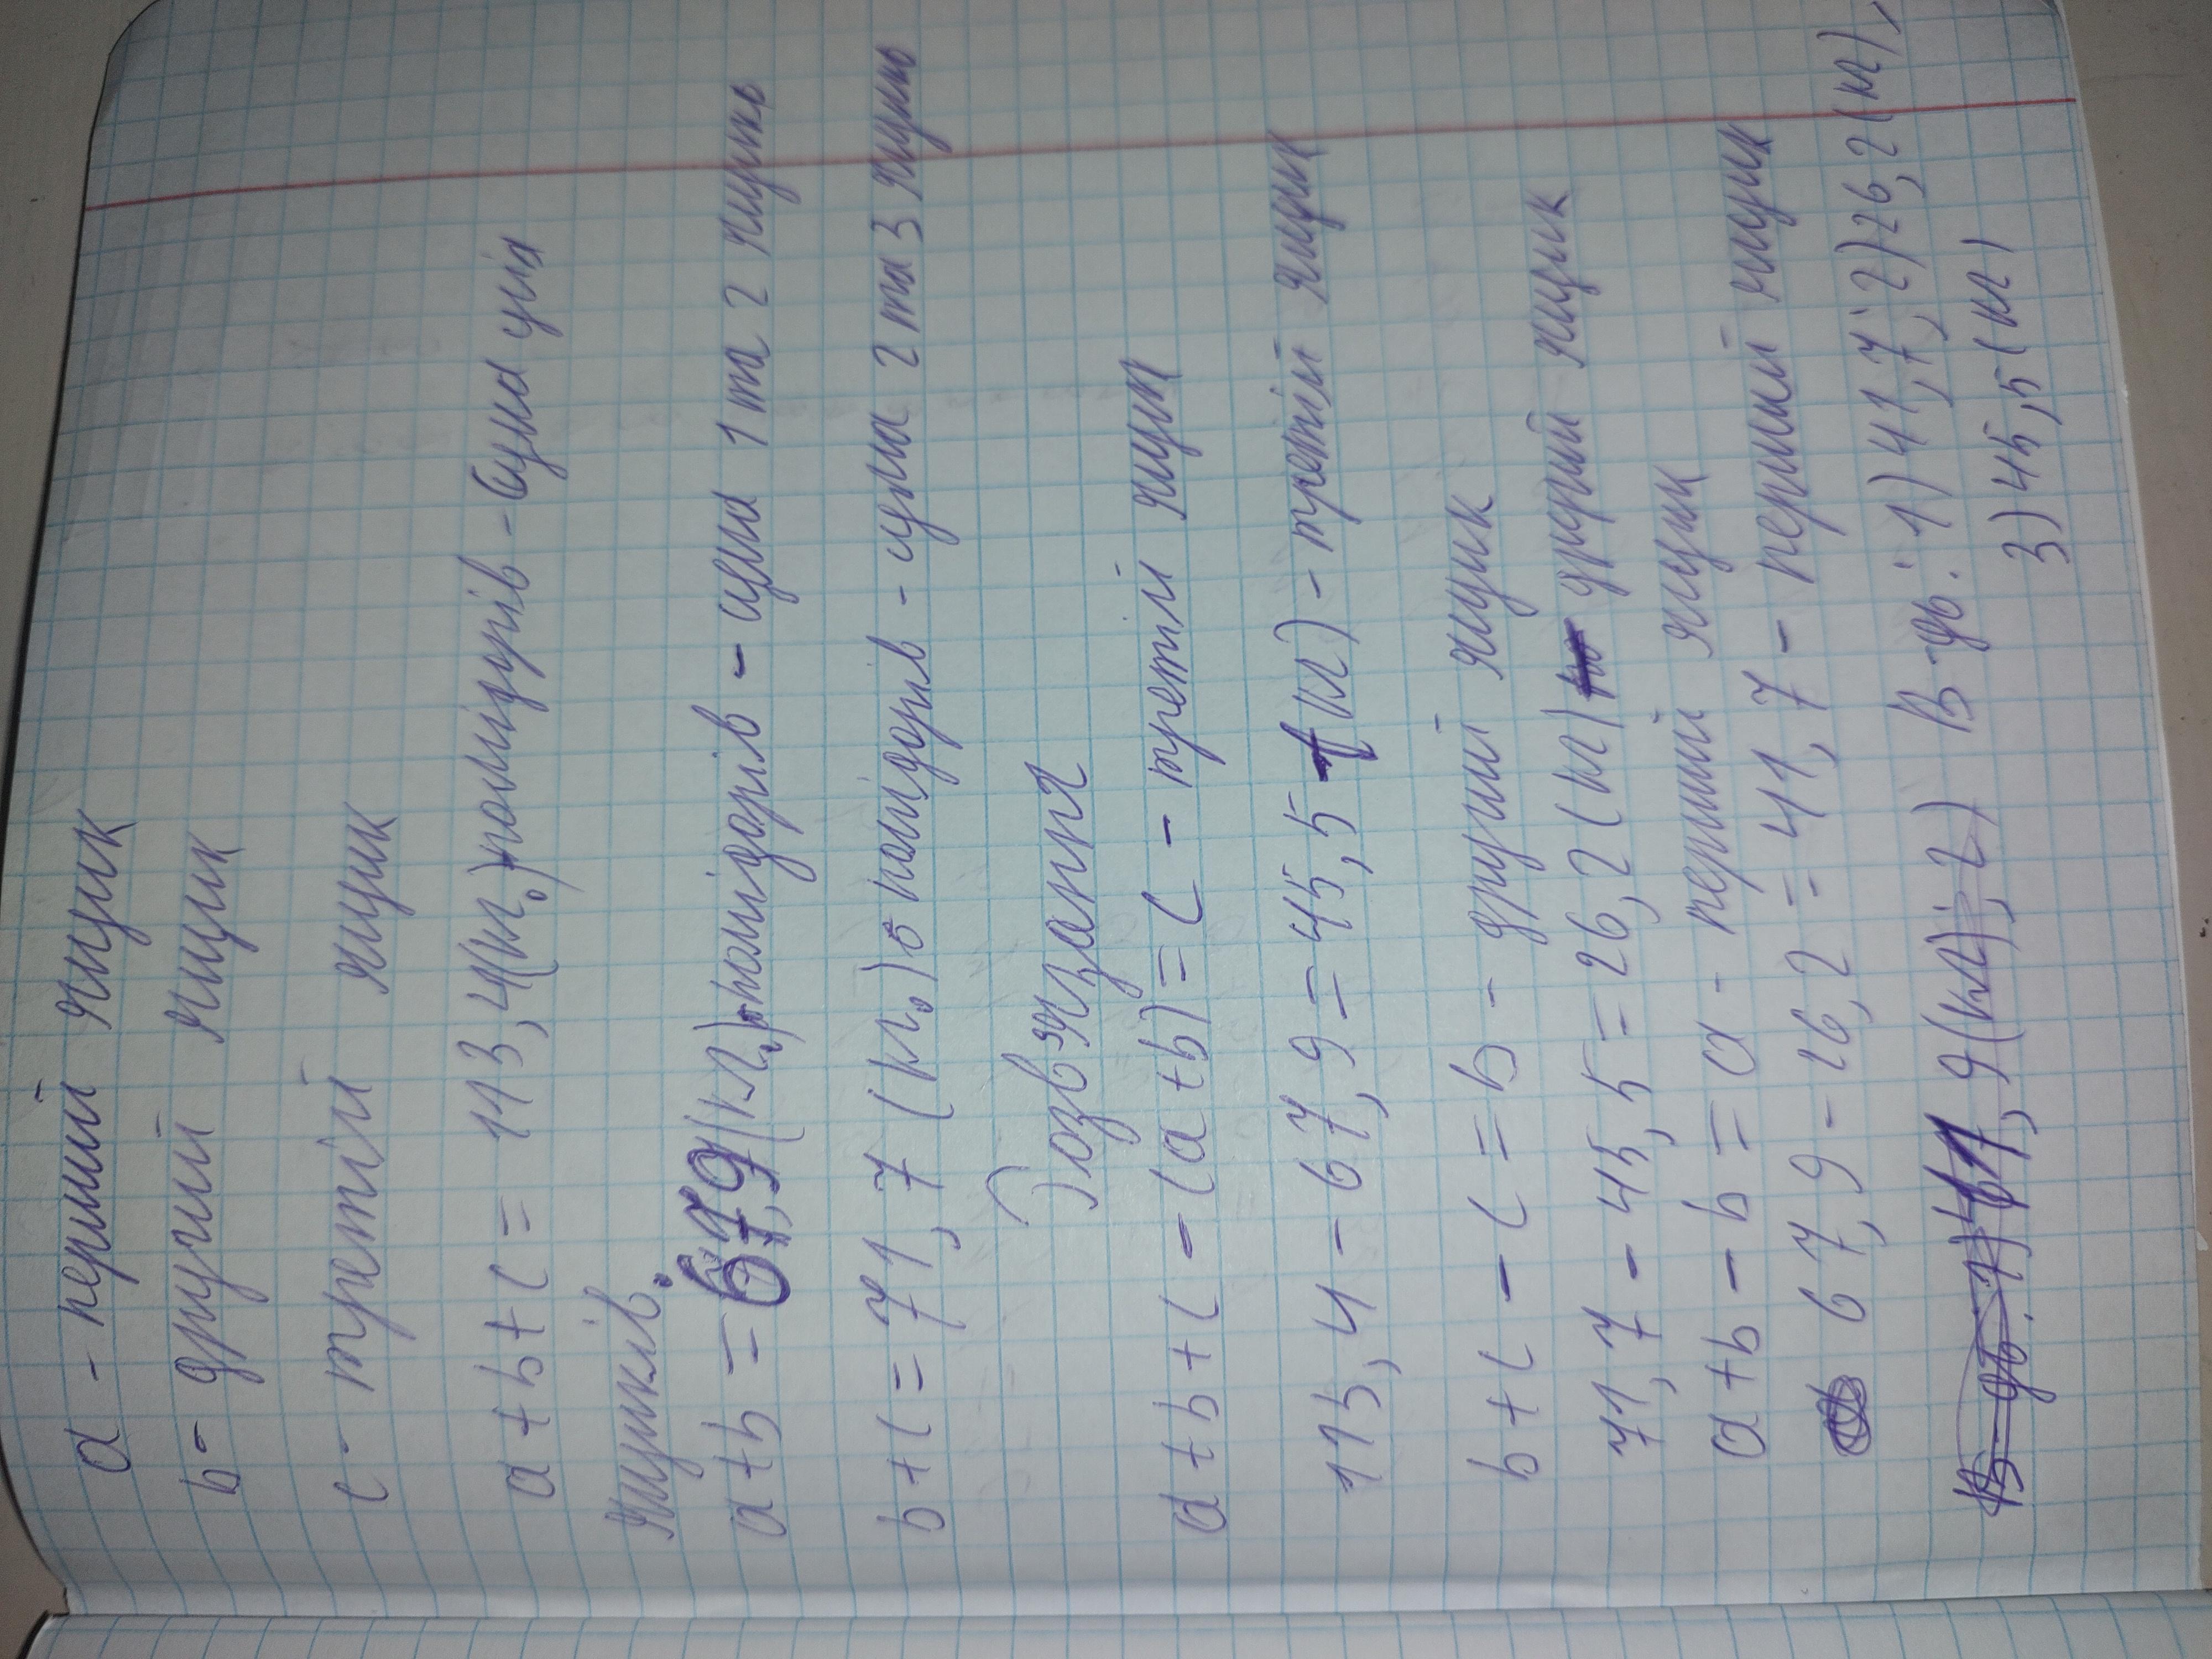 a - перший ящик
b - другий ящик
c - третій ящик
a + b + c = 113,4(кг.) помідурів - Сума усіх
ящиків.
a + b = 67,9(кг.) помідорів - сума 1 та 2 ящика
b + c = 71,7 (кг.) помідорів - сума 2 та 3 ящика
Розвязання
a + b + c - (a + b) = c - третій ящик
113,4 - 67,9 = 45,5 (кг) - третій ящик
b + c - c = b - другий ящик
71,7 - 45,5 = 26,2 (кг) другий ящик
a + b - b = a - перший ящик
67,9 - 26,2 = 41,7 - перший ящик
В-дь: 1) 41,7; 2) 26,2 (кг),
3) 45,5 (кг)